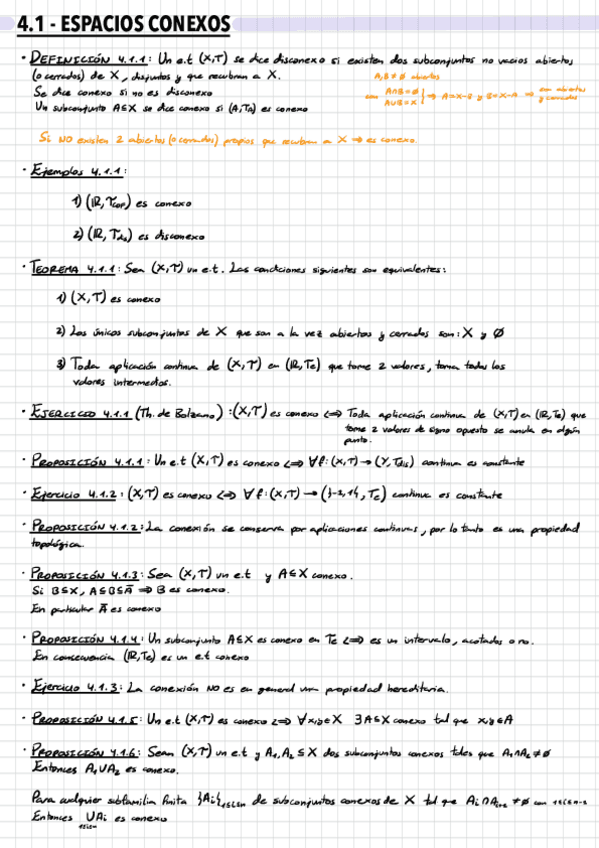 4.1 - ESPACIOS CONEXOS
· DEFINICIÓN 4.1.1: Un e.t (X,T) se dice disconexo si existen dos subconjuntos no vacios abiertos
(o cerrados) de X, disjuntos y que recubran a X.
A,B≠∅ abiertos
Se dice conexo si no es disconexo
con A∩B=∅ A∪B=X } ⇒ A=X-B y B=X-A ⇒ son abiertos y cerrados
Un subconjunto A⊆X se dice conexo si (A,T_A) es conexo
Si NO existen 2 abiertos (o cerrados) propios que recubran a X ⇒ es conexo.
· Ejemplos 4.1.1:
1) (ℝ, T_cof) es conexo
2) (ℝ, T_dis) es disconexo
· TEOREMA 4.1.1: Sea (X,T) un e.t. Las condiciones siguientes son equivalentes:
1) (X,T) es conexo
2) Los únicos subconjuntos de X que son a la vez abiertos y cerrados son: X y ∅
3) Toda aplicación continua de (X,T) en (ℝ,Te) que tome 2 valores, toma todos los
valores intermedios.
· EJERCICIO 4.1.1 (Th. de Bolzano): (X,T) es conexo ⇔ Toda aplicación continua de (X,T) en (ℝ,Te) que
tome 2 valores de signo opuesto se anula en algún
punto.
· PROPOSICIÓN 4.1.1: Un e.t (X,T) es conexo ⇔ ∀f:(X,T)→(Y,T_dis) continua es constante
· Ejercicio 4.1.2: (X,T) es conexo ⇔ ∀f:(X,T)→({-1,1},Te) continua es constante
· PROPOSICIÓN 4.1.2: La conexión se conserva por aplicaciones continuas, por lo tanto es una propiedad
topológica.
· PROPOSICIÓN 4.1.3: Sea (X,T) un e.t y A⊆X conexo.
Si B⊆X, A⊆B⊆Ā ⇒ B es conexo.
En particular Ā es conexo
· PROPOSICIÓN 4.1.4: Un subconjunto A⊆X es conexo en Te ⇔ es un intervalo, acotados o no.
En consecuencia (ℝ,Te) es un e.t conexo
· Ejercicio 4.1.3: La conexión NO es en general una propiedad hereditaria.
· PROPOSICIÓN 4.1.5: Un e.t (X,T) es conexo ⇔ ∀x,y∈X ∃A⊆X conexo tal que x,y∈A
· PROPOSICIÓN 4.1.6: Sean (X,T) un e.t y A₁,A₂⊆X dos subconjuntos conexos tales que A₁∩A₂≠∅
Entonces A₁∪A₂ es conexo.
Para cualquier subfamilia finita {Ai}1≤i≤n de subconjuntos conexos de X tal que Ai∩Ai+1≠∅ con 1≤i≤n-1
Entonces ∪Ai es conexo
1≤i≤n